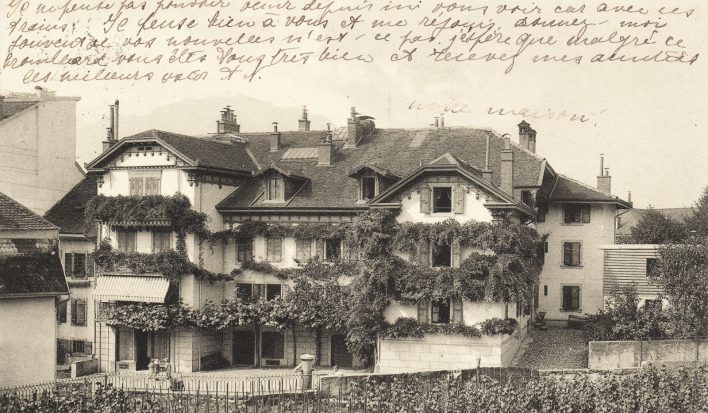 pouvoir venir depuis ici vous voir car avec ces
trains! Je pense bien à vous et me réjouis, donnez-moi
souvent de vos nouvelles n'est-ce pas, j'espère que malgré ce
brouillard vous êtes tous très bien et recevez mes amitiés
les meilleurs
notre maison.